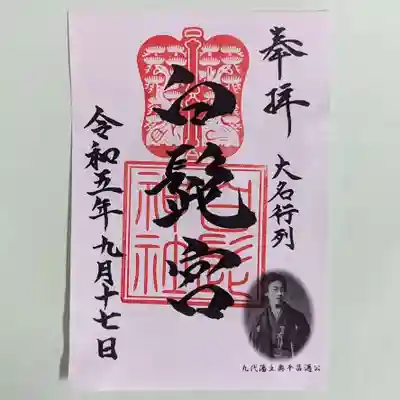 奉拝
大名行列
白髭宮
白髭神社
令和五年九月十七日
九代藩主奥平昌邁公